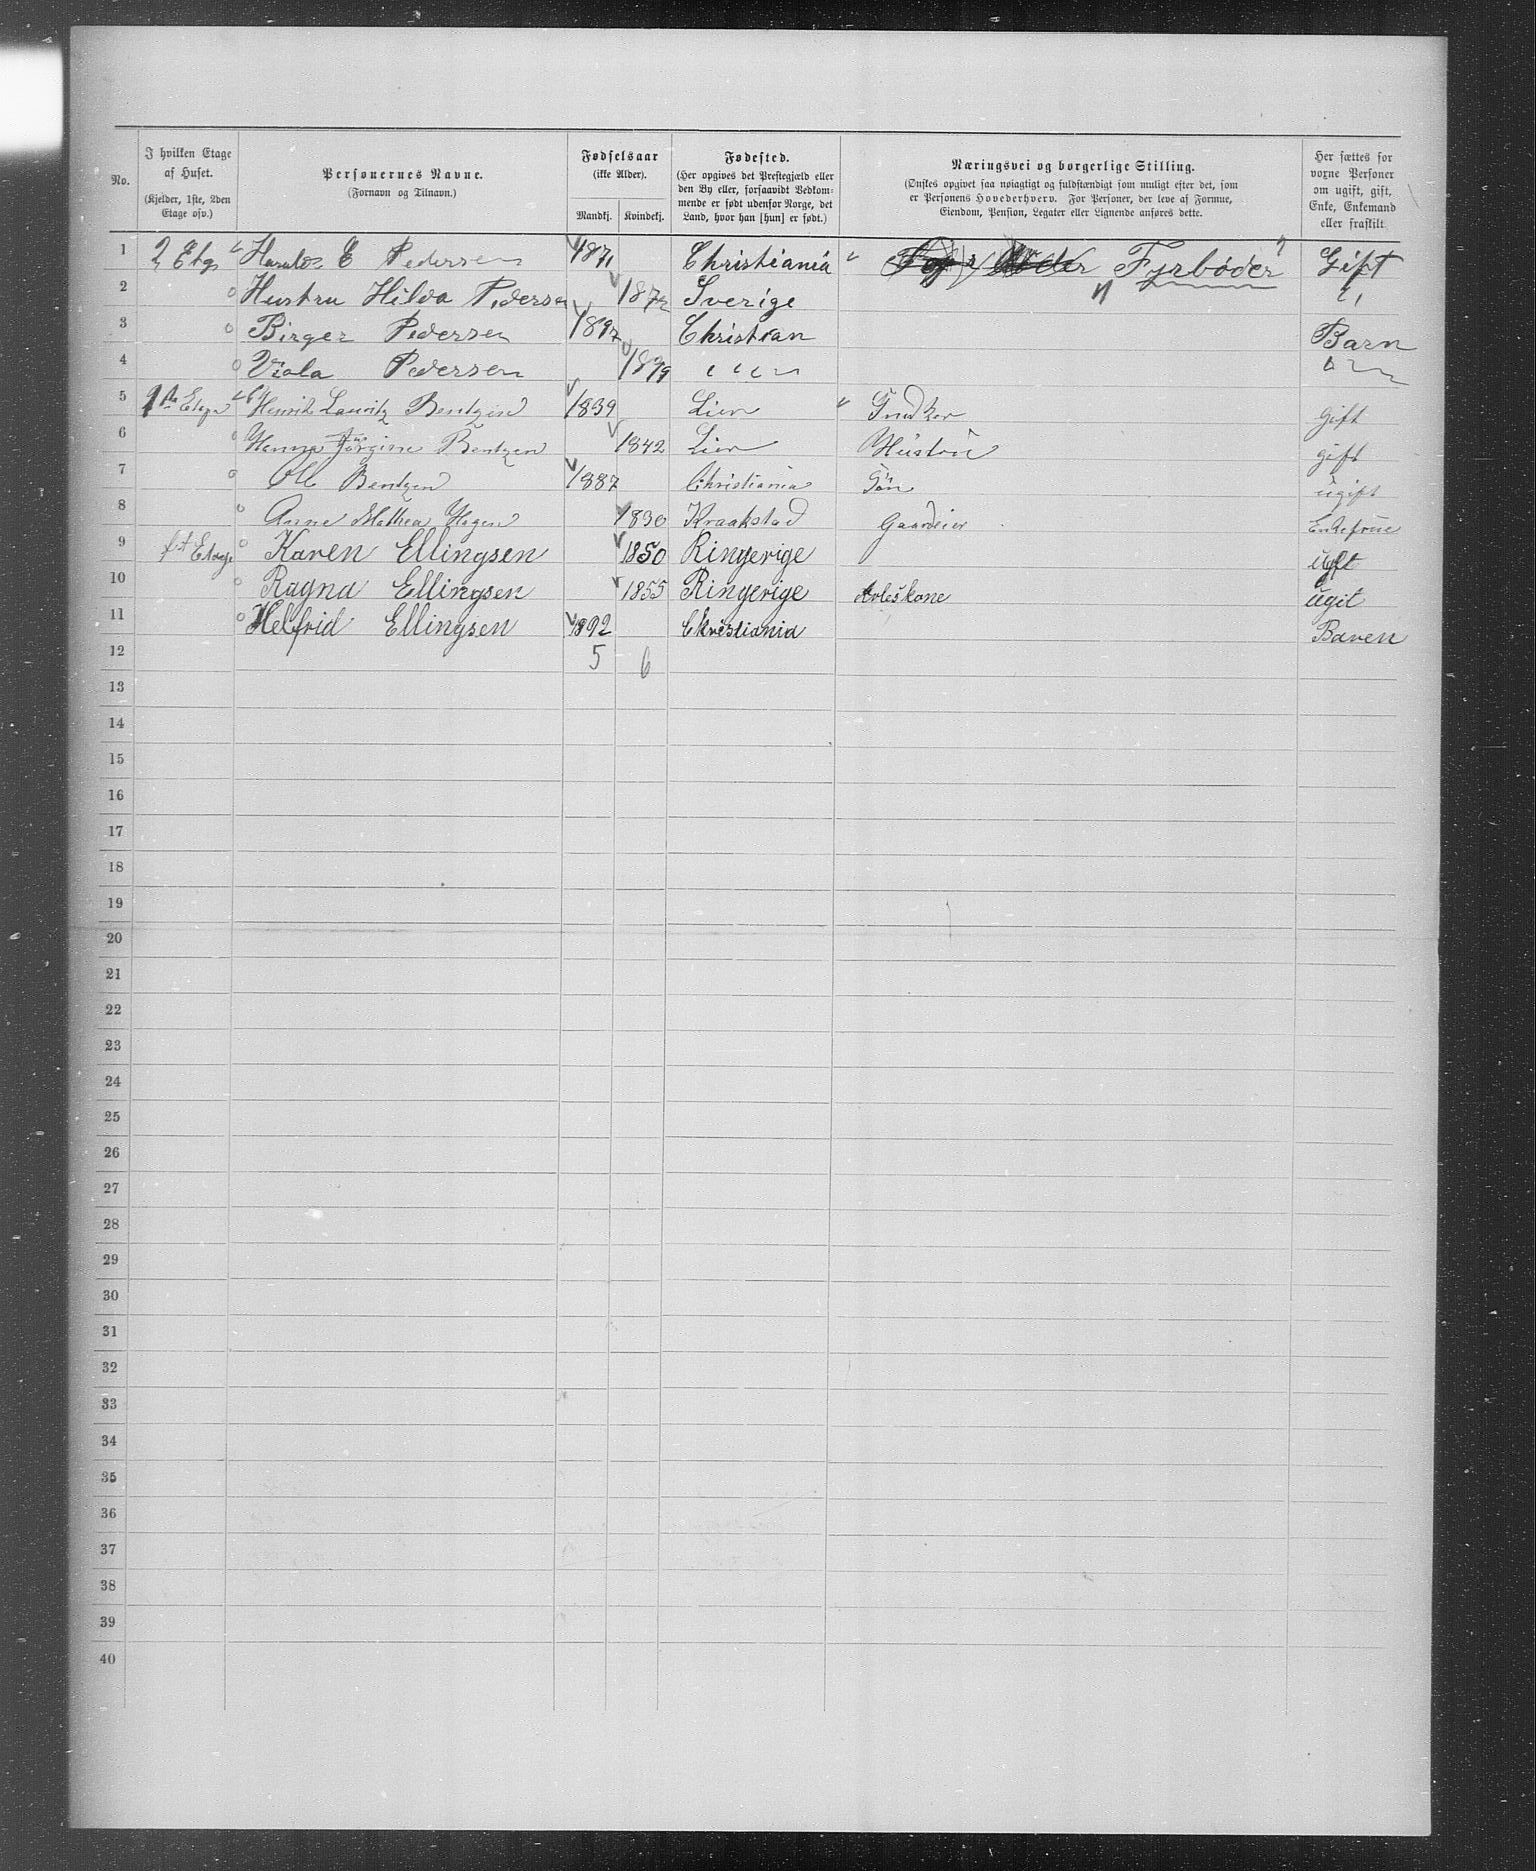 No. | I hvilken Etage af Huset. (Kjelder, 1ste, 2den Etage osv.) | Personernes Navne. (Fornavn og Tilnavn.) | Fødselsaar (ikke Alder). Mandkj. | Kvindekj. | Fødested. (Her opgives det Prestegjæld eller den By eller, forsaavidt Vedkommende er født udenfor Norge, det Land, hvor han [hun] er født.) | Næringsvei og borgerlige Stilling. (Ønskes opgivet saa nøiagtigt og fuldstændigt som muligt efter det, som er Personens Hovederhverv. For Personer, der leve af Formue, Eiendom, Pension, Legater eller Lignende anføres dette. | Her sættes for voxne Personer om ugift, gift, Enke, Enkemand eller fraskilt.
1 2 Etg Harald E Pedersen 1871 Christiania Fyrbøder Gift
2 Hustru Hilda Pedersen 1872 Sverige "
3 Birger Pedersen 1897 Christian Barn
4 Viola Pedersen 1899 " " " "
5 1ste Etage Henrik Lauritz Bentzen 1839 Lier Snedker Gift
6 Hanna Jørgine Bentzen 1842 Lier Hustru gift
7 Ole Bentzen 1887 Christiania Søn ugift
8 Anne Mathea Hagen 1830 Kraakstad Gaardeier Enkefrue
9 1st Etage Karen Ellingsen 1850 Ringerige ugft
10 Ragna Ellingsen 1855 Ringerige ugit
11 Helfrid Ellingsen 1892 Christiania Baren
12 5 6
13
14
15
16
17
18
19
20
21
22
23
24
25
26
27
28
29
30
31
32
33
34
35
36
37
38
39
40